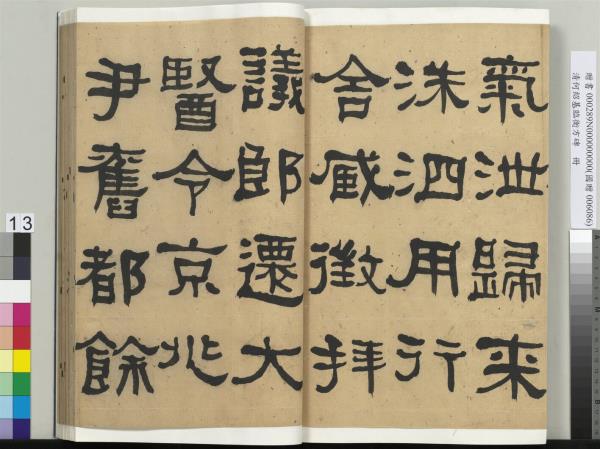 氣泄歸来
洙泗用行
舍臧徵拜
議郎遷大
醫令京兆
尹舊都餘
贈書 000289N000000000(國贈 006086)
清何紹基臨衡方碑 冊
13